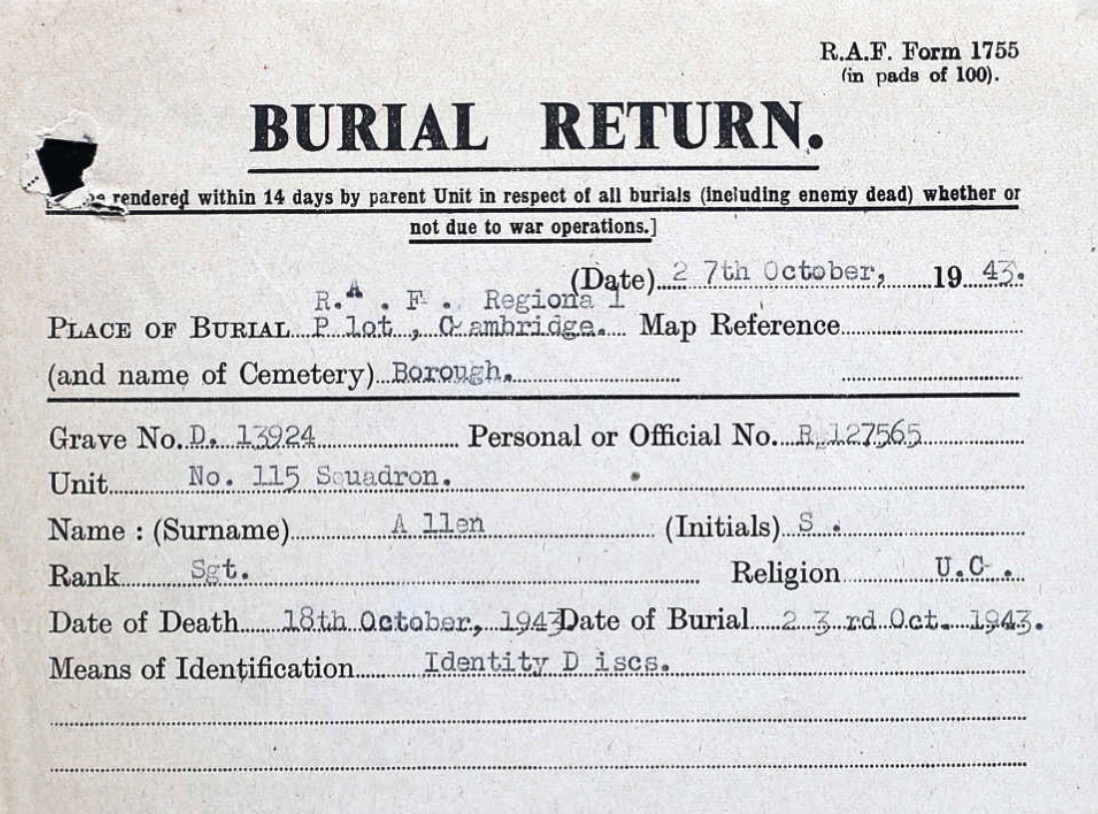 R.A.F. Form 1755
(in pads of 100).
BURIAL RETURN.
rendered within 14 days by parent Unit in respect of all burials (including enemy dead) whether or
not due to war operations.]
(Date) 27th October, 1943.
R.A.F. Regional
PLACE OF BURIAL Plot, Cambridge. Map Reference
(and name of Cemetery) Borough.
Grave No. D. 13924 Personal or Official No. R.127565
Unit No. 115 Squadron.
Name : (Surname) Allen (Initials) S.
Rank Sgt. Religion U.C.
Date of Death 18th October, 1943 Date of Burial 23rd Oct. 1943.
Means of Identification Identity Discs.